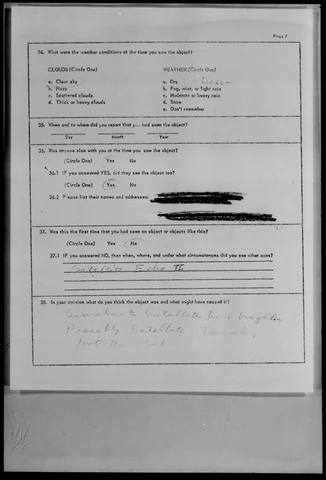 Page 7
34. What were the weather conditions at the time you saw the object?
CLOUDS (Circle One) WEATHER (Circle One)
a. Clear sky a. Dry
b. Hazy b. Fog, mist, or light rain
c. Scattered clouds c. Moderate or heavy rain
d. Thick or heavy clouds d. Snow
e. Don't remember
35. When and to whom did you report that you had seen the object?
Day Month Year
36. Was anyone else with you at the time you saw the object?
(Circle One) Yes No
36.1 IF you answered YES, did they see the object too?
(Circle One) Yes No
36.2 Please list their names and addresses:
37. Was this the first time that you had seen an object or objects like this?
(Circle One) Yes No
37.1 IF you answered NO, then when, where, and under what circumstances did you see other ones?
Satellite Echo II
38. In your opinion what do you think the object was and what might have caused it?
Similar to Satellite but brighter
Possibly Satellite